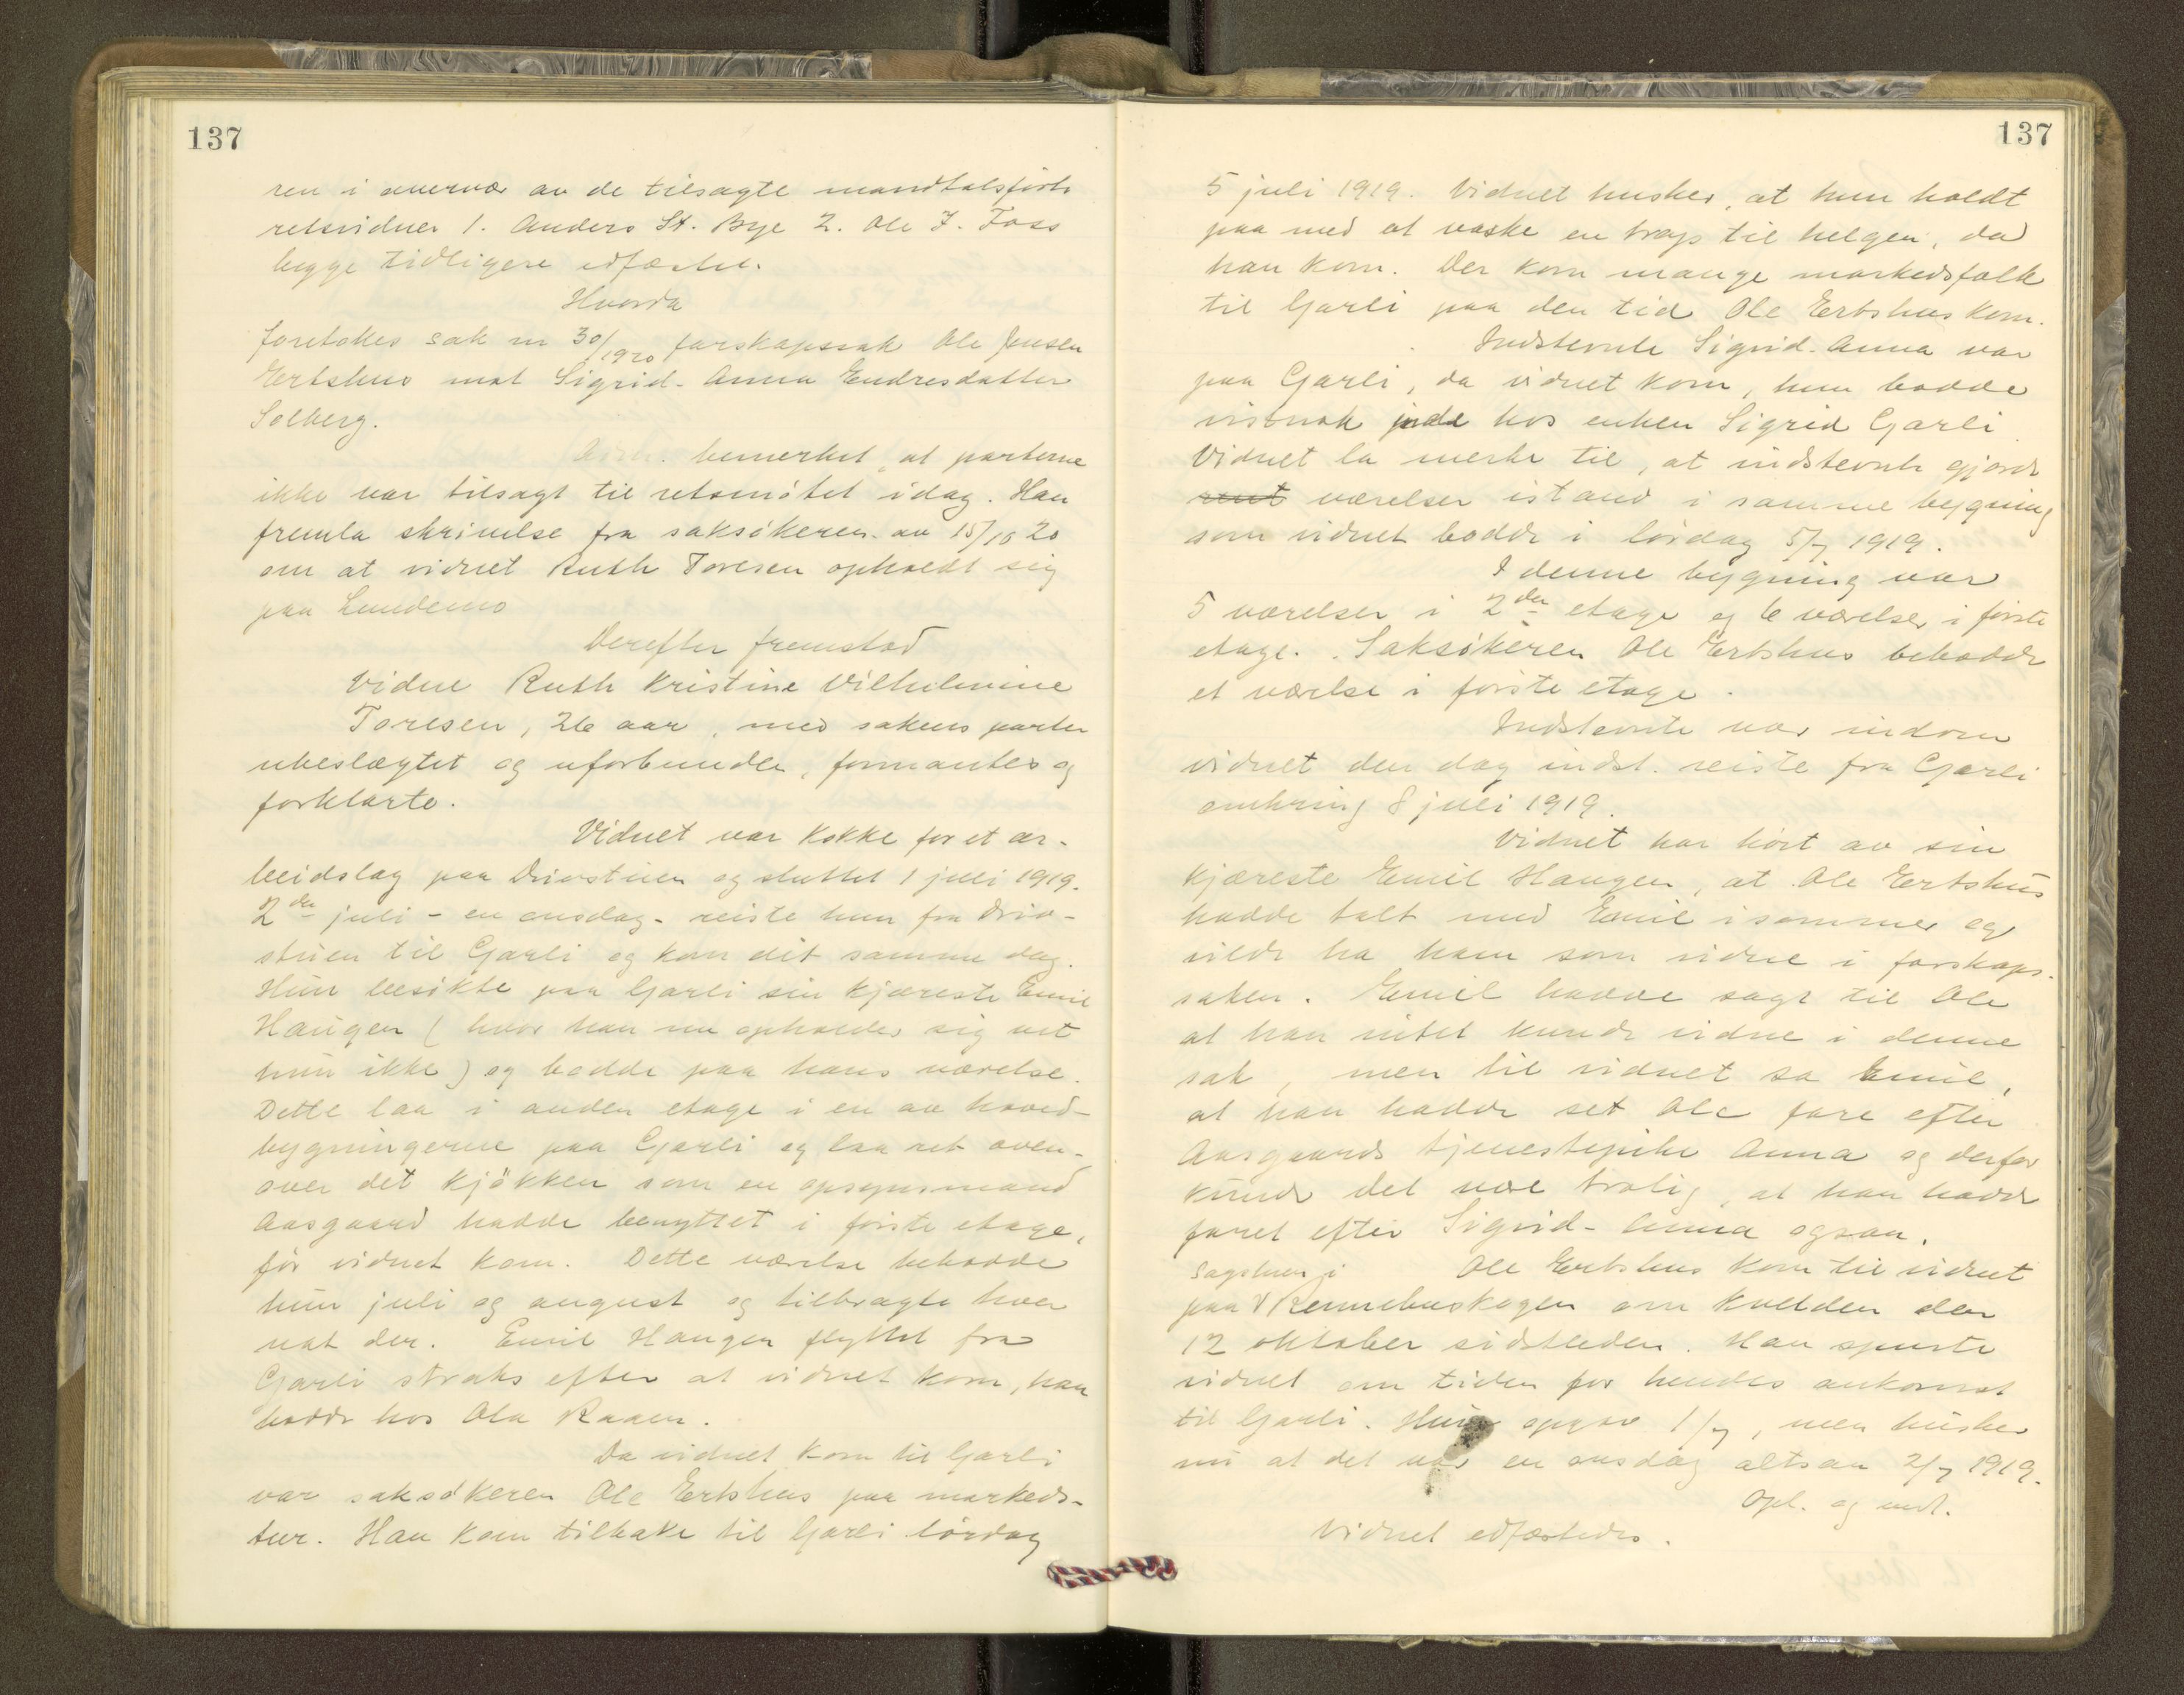 137
ren i overvær av de tilsagte mandtalsførte
retsvidner 1. Anders St. Bye 2. Ole J. Foss
begge tidligere edfæstet.
Hvorda
foretokes sak nr 30/1920 farskapssak Ole Jensen
Ertshus mot Sigrid-Anna Endresdatter
Solberg.
bemerket, at parterne
ikke var tilsagt til retsmøtet idag. Han
fremla skrivelse fra saksøkeren av 15/10 20
om at vidnet Ruth Toresen opholdt sig
paa Lundemo
Derefter fremstod
Vidne Ruth Kristine Vilhelmine
Toresen, 26 aar, med sakens parter
ubeslægtet og uforbunden, formantes og
forklarte.
Vidnet var kokke for et ar-
beidslag paa Drivstuen og sluttet 1 juli 1919.
2den juli - en onsdag - reiste hun fra Driv-
stuen til Garli og kom dit samme dag.
Hun besøkte paa Garli sin kjæreste Emil
Haugen (hvor han nu opholder sig vet
hun ikke) og bodde paa hans værelse.
Dette laa i anden etage i en av hoved-
bygningerne paa Garli og laa ret oven-
over det kjøkken som en opsynsmand
Aasgaard hadde benyttet i første etage,
før vidnet kom. Dette værelse bebodde
hun juli og august og tilbragte hver
nat der. Emil Haugen flyttet fra
Garli straks efter at vidnet kom, han
bodde hos Ola Raaen.
Da vidnet kom til Garli
var saksøkeren Ole Ertshus paa markeds-
tur. Han kom tilbake til Garli lørdag
137
5 juli 1919. Vidnet husker, at hun holdt
paa med at vaske en trap til helgen, da
han kom. Der kom mange markedsfolk
til Garli paa den tid Ole Ertshus kom.
Indstevnte Sigrid-Anna var
paa Garli, da vidnet kom, hun bodde
visnok inde hos enken Sigrid Garli
Vidnet la merke til, at indstevnte gjorde
rent værelser istand i samme bygning
som vidnet bodde i lørdag 5/7 1919.
I denne bygning var
5 værelser i 2den etage og 6 værelser i første
etage. Saksøkeren Ole Ertshus bebodde
et værelse i første etage.
Indstevnte var indom
vidnet den dag indst. reiste fra Garli
omkring 8 juli 1919.
Vidnet har hørt av sin
kjæreste Emil Haugen, at Ole Ertshus
hadde talt med Emil isommer og
vilde ha ham som vidne i farskaps-
saken. Emil hadde sagt til Ole
at han intet kunde vidne i denne
sak, men til vidnet sa Emil,
at han hadde set Ole fare efter
Aasgaards tjenestepike Anna og derfor
kunde det være trolig, at han hadde
faret efter Sigrid-Anna ogsaa.
Ole Ertshus kom til vidnet
sagstuen i
paa Rennebuskogen om kvelden den
12 oktober sidstleden. Han spurte
vidnet om tiden for hendes ankomst
til Garli. Hun opgav 1/7, men husker
nu at det var en onsdag altsaa 2/7 1919.
Opl. og vedt.
Vidnet edfæstedes.